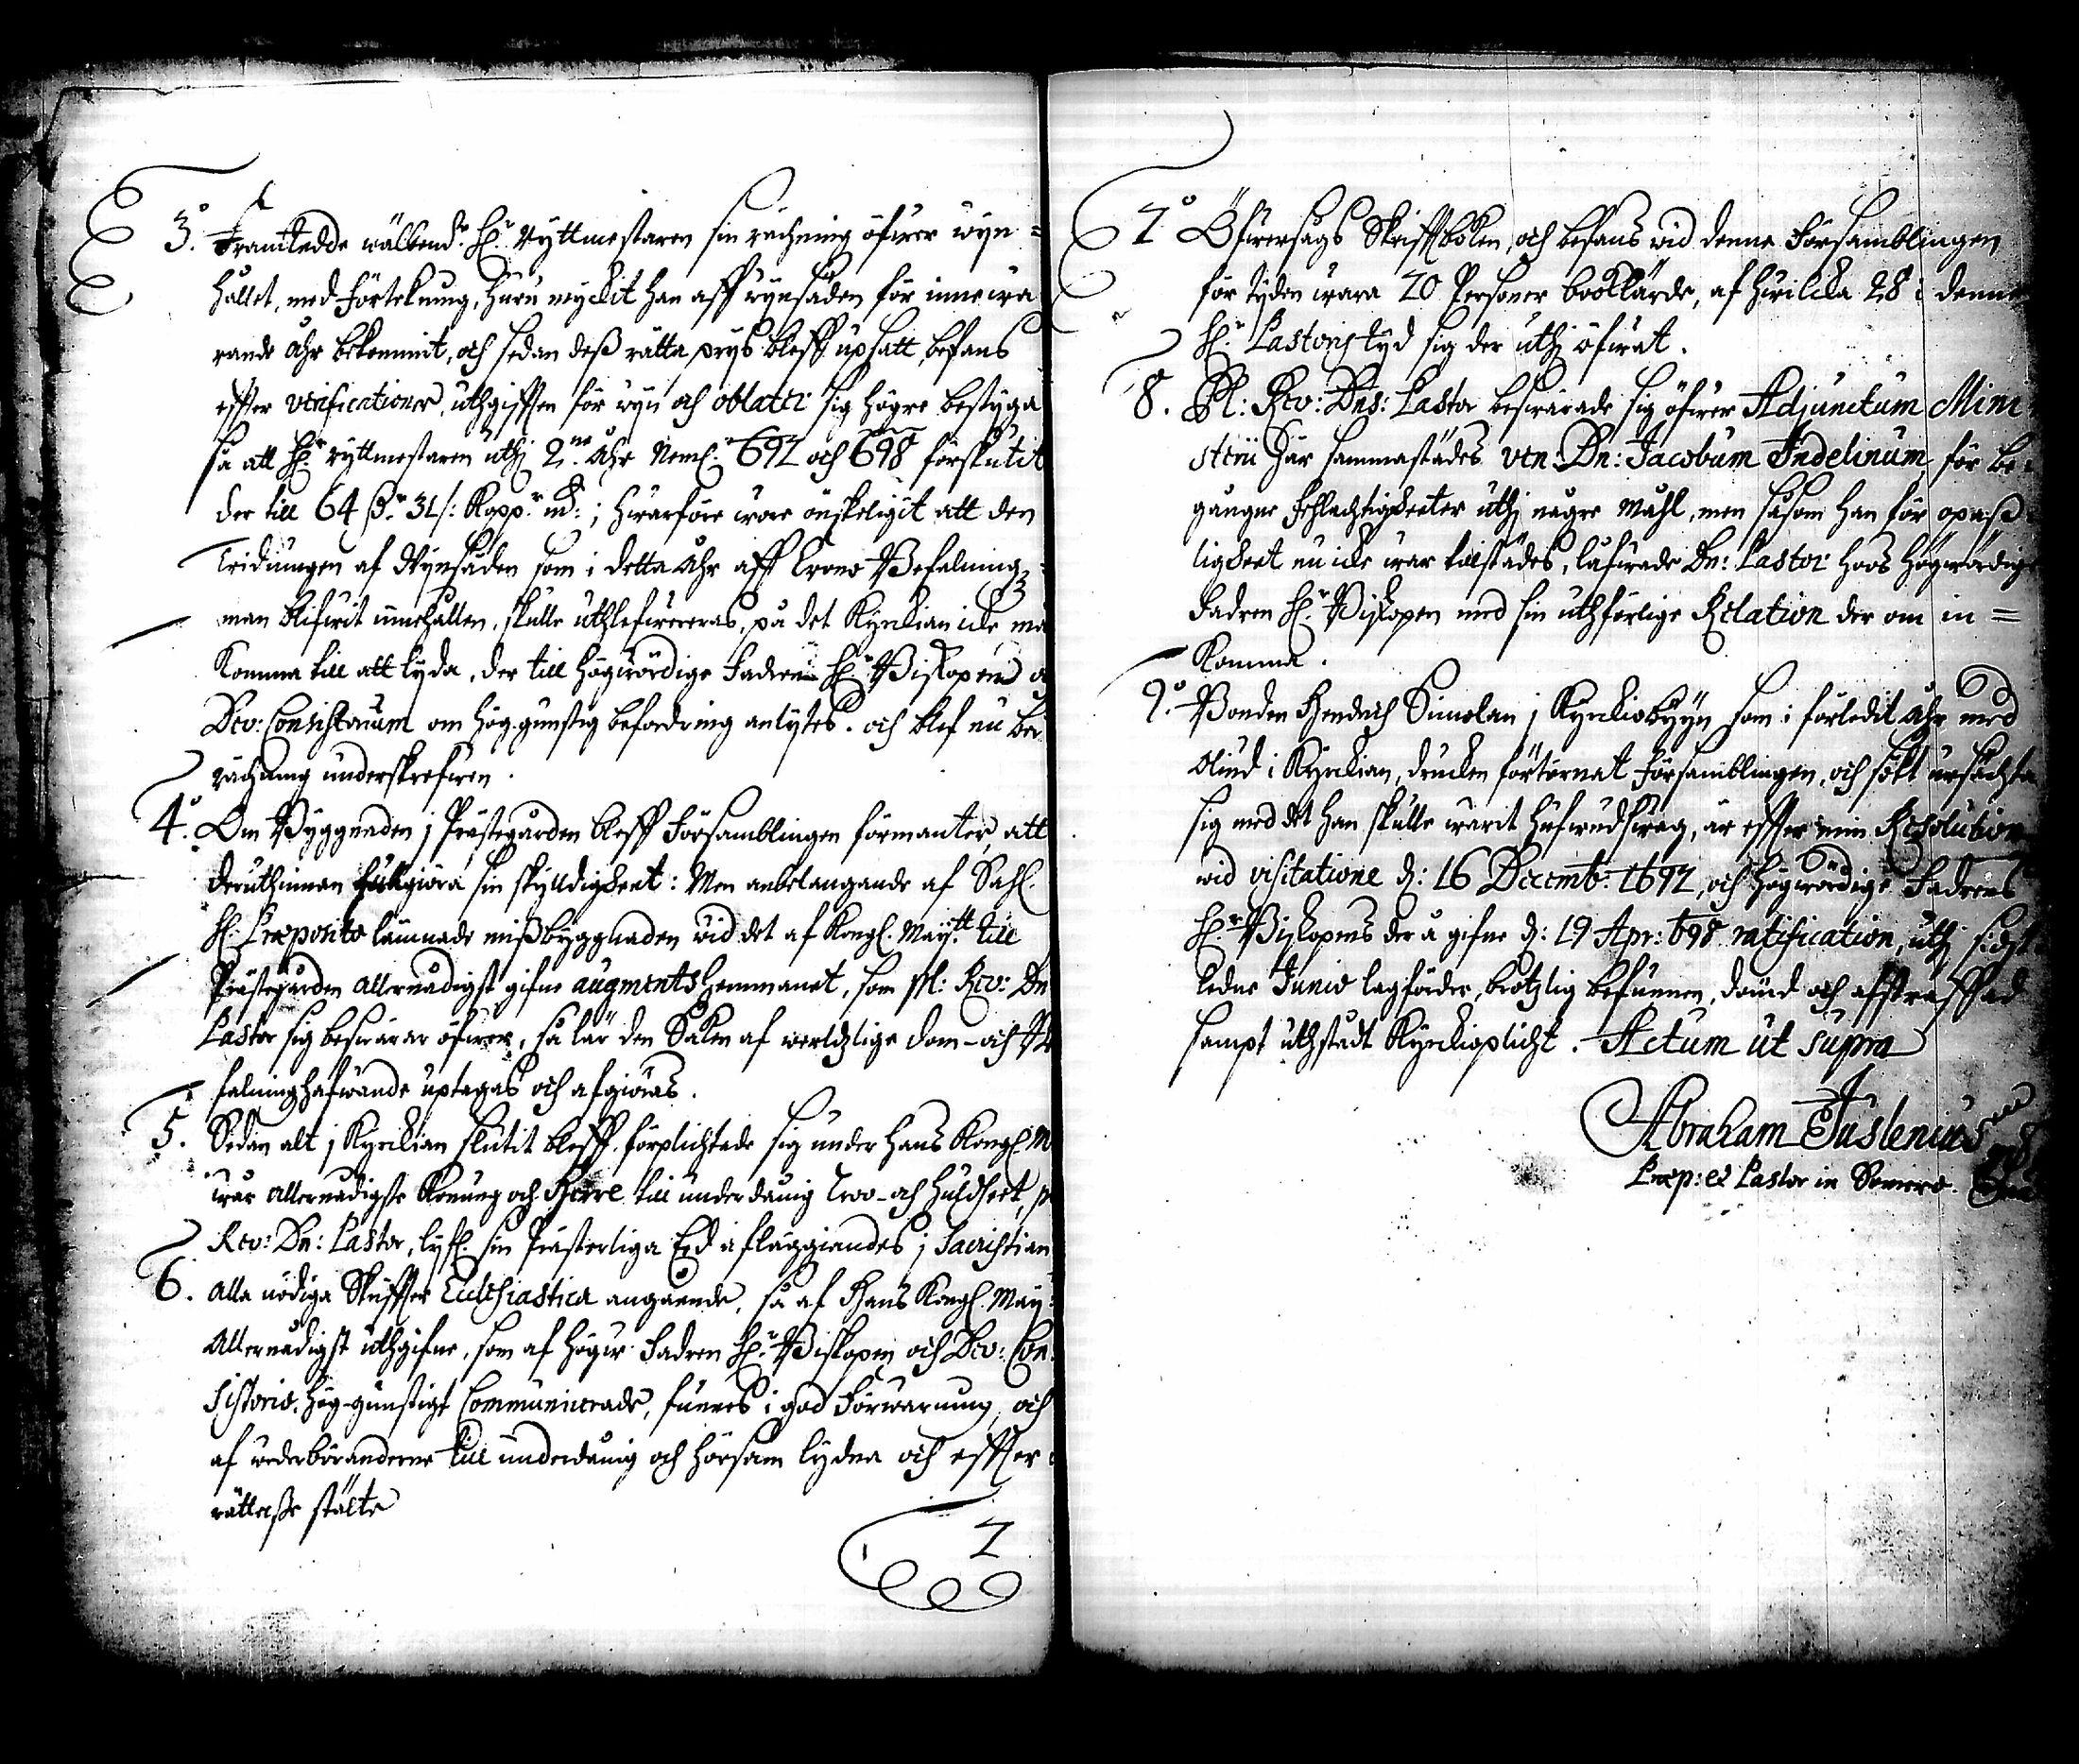 3.° Framtedde wälbem.de H.r Ryttmestaren sin rächning öfwer wyn=
hållet, med förtekning, huru myckit han aff wynsäden för innewa
rande åhr bekommit, och sedan deß rätta prys bleff upsatt, befans
effter verificationer, uthgifften för wyn och oblater sig högre bestyga
så att H.r ryttmestaren uthj 2.ne åhr Neml. 697 och 698 förskutit
der till 64 31/: Kopp.r m:; hwarföre wore önskeligit att den
tridungen af Wynsäden som i detta åhr aff Crono Befalnings
man blifwit innehållen, skulle uthlefwereras, på det Kyrckian icke må
komma till att lyda, der till högwördige Fadren H.r Biskopen o
Ven: Consistorium om hög-gunstig befordring anlytes. och blef nu be:
rächning underskrefwen.
4.° Om Byggnaden j Prästegården bleff Församblingen förmanter, att
deruthinnan fullgiöra sin skylldigheet: Men anbelangande af Sahl.
H. Præposito lämnade mißbyggnaden wid det af Kongl. May.tt till
Prästegården allernådigst gifne augments hemmanet, som Pl: Rev: Dn
Pastor sig beswärar öfwer, så lär den Saken af werldzlige dom- och Be
falninghafwande uptagas och afgiöras.
5. Sedan alt j Kyrckian slutit bleff, förplichtade sig under Hans Kongl. M
wår allernådigste Konung och Herre till underdånig troo- och huldheet, p
Rev: Dn: Pastor, lyfl. sin Prästerliga Eed afläggiandes j Sacristian
6. Alla nödiga Skriffter Ecclesiastica angående, så af Hans Kongl. May:
Allernådigst uthgifne, som af högw. Fadren H.r Biskopen och Ven: Con-
sistorio, hög-gunstigt Communicerade, funnes i god förwarning, och
af wederböranderne till underdånig och hörsam lydna och effter
rättelße stälte
7
7° Öfwersågs Skrifftboken, och befans wid denne Församblingen
för tyden wara 70 Personer bookLärde, af hwilcka 28 i denne
H.r Pastoris tyd sig der uthj öfwat.
8. Pl: Rev: Dns: Pastor beswärade sig öfwer Adjunctum Mini
sterii här sammastädes ven: Dn: Jacobum Indelinum för be
gångne fehlachtigheeter uthj någre mähl, men såsom han för opaß
ligheet nu icke war tillstädes, låfwade Dn: Pastor hoos högwördige
Fadren H.r Biskopen med sin uthförlige Relation der om in=
komma.
9.° Bonden Hendrich Simolan j Kyrckiobyyn som i förledit åhr med
oliud i Kyrckian, drucken förtörnat Församblingen, och sökt ursächta
sig med det han skulle warit hufwudswag, är effter min Resolution
wid visitatione d: 16 Decemb: 1697, och högwördige Fadrens
H.r Biskopens der å gifne d: 19 Apr: 698 ratification, uthj sidst
ledne Junio lagförder, brotzlig befunnen, dömd och afstraffad
sampt uthstådt Kyrckioplicht. Actum ut supra
Abraham Juslenius
Præp: et Pastor in Somero.